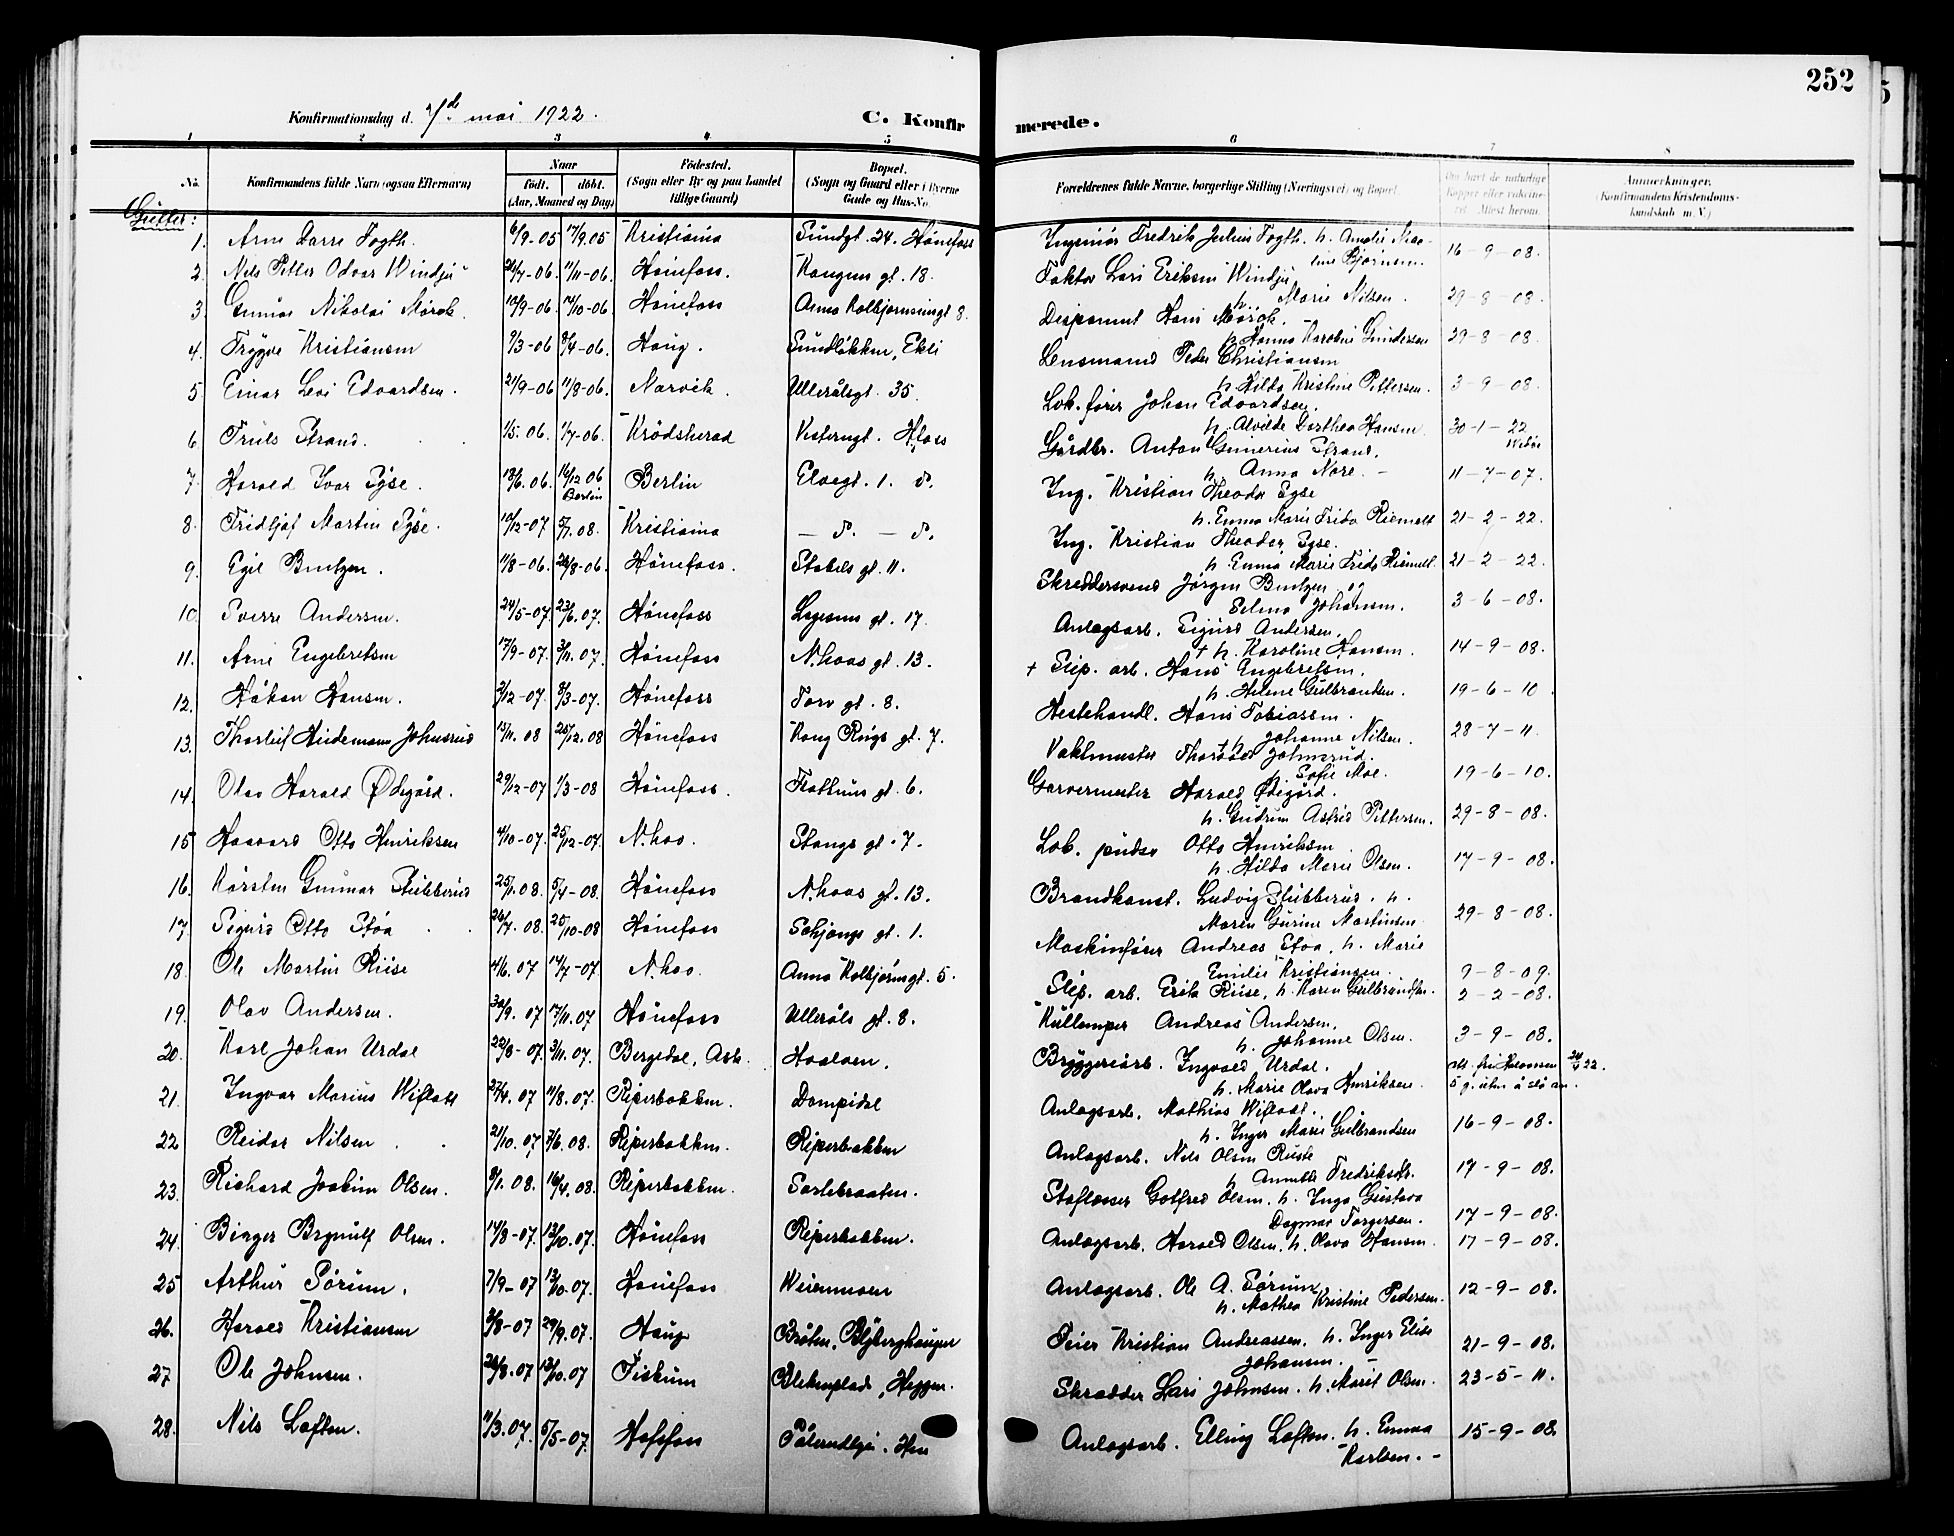 252
Konfirmationsdag d. 7de mai 1922.
C. Konfirmerede.
1 2 3 4 5 6 7 8
No.
Konfirmandens fulde Navn (ogsaa Efternavn)
Naar
født. døbt.
(Aar, Maaned og Dag)
Fødested.
(Sogn eller By og paa Landet
tillige Gaard)
Bopæl.
(Sogn og Gaard eller i Byerne
Gade og Hus-No.
Forældrenes fulde Navne, borgerlige Stilling (Næringsvei) og Bopæl.
Om havt de naturlige
Kopper eller vakcine-
ret. Attest herom.
Anmærkninger.
(Konfirmandens Kristendoms-
kundskab m. V.)
Gutter:
1. Arne Darre Fogth. 6/9-05 17/9.05 Kristiania Sundgt. 24. Hønefoss Ingeniør Fredrik Julius Fogth. h. Amalie Nico-
line Bjørnsen. 16-9-08.
2. Nils Petter Odvar Windju 11/11-06. Hønefoss. Kongens gt. 18. Faktor Lars Eriksen Windju
h. Marie Nilsen. 29-8-08.
3. Gunnar Nikolai Mørch. 12/9-06 14/10-06 Hønefoss Anna Kolbjørnsensgt 8. Disponent Hans Mørch.
h. Hanna Karoline Gundersen 29-8-08.
4. Trygve Kristiansen 9/3-06 8/4-06. Haug. Sundløkken, Ekli Lensmand Peder Christiansen
h. Hilda Kristine Pettersen. 3-9-08.
5. Einar Levi Edvardsen. 21/9-06 11/8-06. Narvik. Ullerålsgt. 35. Lok. fører Johan Edvardsen.
h. Alvilde Dorthea Hansen 30-1-22
6. Truls Strand. 1/5-06. 1/7-06. Krödsherad Vesterngt. Hfoss Gårdbr. Anton Gunerius Strand.
h. Anna Nore. 11-7-07.
7. Harald Ivar Gyse. 13/6.06. 16/12 06 Berlin Berlin Elvegt. 1. d. Ing. Kristian Theodor Gyse
h. Emma Marie Frida Riemelt 21-2-22.
8. Fridtjof Martin Gyse. 10/12-07 5/7.08. Kristiania - d. - d. Ing. Kristian Theodor Gyse.
h. Emma Marie Frida Riemelt. 21-2-22.
9. Egil Bentzen. 11/8-06. 26/8-06. Hønefoss. Stabels gt. 11. Skreddersvend Jørgen Bentzen og
Selma Johansen. 3-6-08.
10. Sverre Andersen. 24/5-07. 23/6.07. Hønefoss Legesens gt. 17. Anlægsarb. Sigurd Andersen.
+ h. Karoline Hansen. 14-9-08.
11. Arne Engebretsen 17/9-07. 3/11.07. Hønefoss N.hovs gt. 13. + Slip. arb. Hans Engebretsen.
h. Helene Gulbrandsen. 19-6-10
12. Håkon Hansen. 2/12-07. 8/3-07. Hønefoss Torv gt. 8. Hestehandl. Hans Tobiassen.
+ h. Johanne Nilsen. 28-7-11.
13. Thorleif Heidemann Johnsrud 13/11.08 26/12.08 Hønefoss Kong Rings gt. 7. Vaktmester Thorvald Johnsrud.
h. Sofie Moe. 19-6-10.
14. Olav Harald Ødegård. 29/12-07 1/3-08 Hønefoss. Flattums gt. 6. Garvermester Harald Ødegård.
h. Gudrun Astrid Pettersen. 29-8-08.
15 Haavard Otto Henriksen 4/10-07. 25/12-07. N.hov. Stangs gt. 7. Lok. pudser Otto Henriksen
h. Hilda Marie Olsen. 17-9-08.
16. Karsten Gunnar Stubberud 25/1.08. 5/4-08. Hønefoss N.hovs gt. 13. Brandkonst. Ludvig Stubberud. h.
Maren Gurine Martinsen. 29-8-08.
17. Sigurd Otto Støa 26/7.08. 25/10-08 Hønefoss Schjongs gt. 1. Maskinfører Andreas Støa, h. Marie
Emilie Kristiansen. 9-8-09.
18. Ole Martin Riise 4/6.07 14/7-07 N.hov. Anna Kolbjørnsgt. 5. Slip. arb. Erik Riise, h. Karen Gulbrandsen. 2-2-08.
19. Olav Andersen. 30/9.07 17/11.07 Hønefoss Ulleråls gt. 8. Kullemper Andreas Andersen.
h. Johanne Olsen. 3-9-08.
20. Karl Johan Urdal 22/8-07. 3/11.07. Bergedal, Ask. Haaloen. Bryggeriarb. Ingvald Urdal.
h. Marie Olava Henriksen.
5 g. uten å slå an.
21. Ingvar Marius Wiflaat 27/4.07 11/8.07. Riperbakken. Dampidel Anlægsarb. Mathias Wiflaat.
h. Inger Marie Gulbrandsen 16-9-08.
22 Reidar Nilsen 21/10.07. 7/6.08. Riperbakken. Riperbakken Anlægsarb. Nils Olsen Ruste
h. Annette Fredriksdtr. 17-9-08.
23. Richard Joakim Olsen. 9/1.08. 16/4.08. Riperbakken. Sortebraaten. Støflasser Gotfred Olsen. h. Inga Gustava
Dagmar Torgersen. 17-9-08.
24. Birger Brynulf Olsen. 14/8-07. 13/10.07. Hønefoss Riperbakken. Anlægsarb. Harald Olsen. h. Olava Hansen. 17-9-08.
25 Arthur Sørum. 7/9-07 13/10.07. Hønefoss Weienmoen Anlægsarb. Ole A. Sørum
h. Mathea Kristine Pedersen. 12-9-08.
26. Harald Kristiansen 3/8-07 29/9.07. Haug Bråten, Blyberghaugen Feier Kristian Andreassen. h. Inger Elise
Johansen. 21-9-08.
27 Ole Johnsen. 26/8.07 13/10.07 Fiskum Blekenplads, Heggen. Skrædder Lars Johnsen. h. Marit Olsen. 23-5-11.
28. Nils Loften. 11/3.07. 5/5-07. Hofsfoss Hen Anlægsarb. Elling Loften. h. Emma
Karlsen. - 15-9-08.